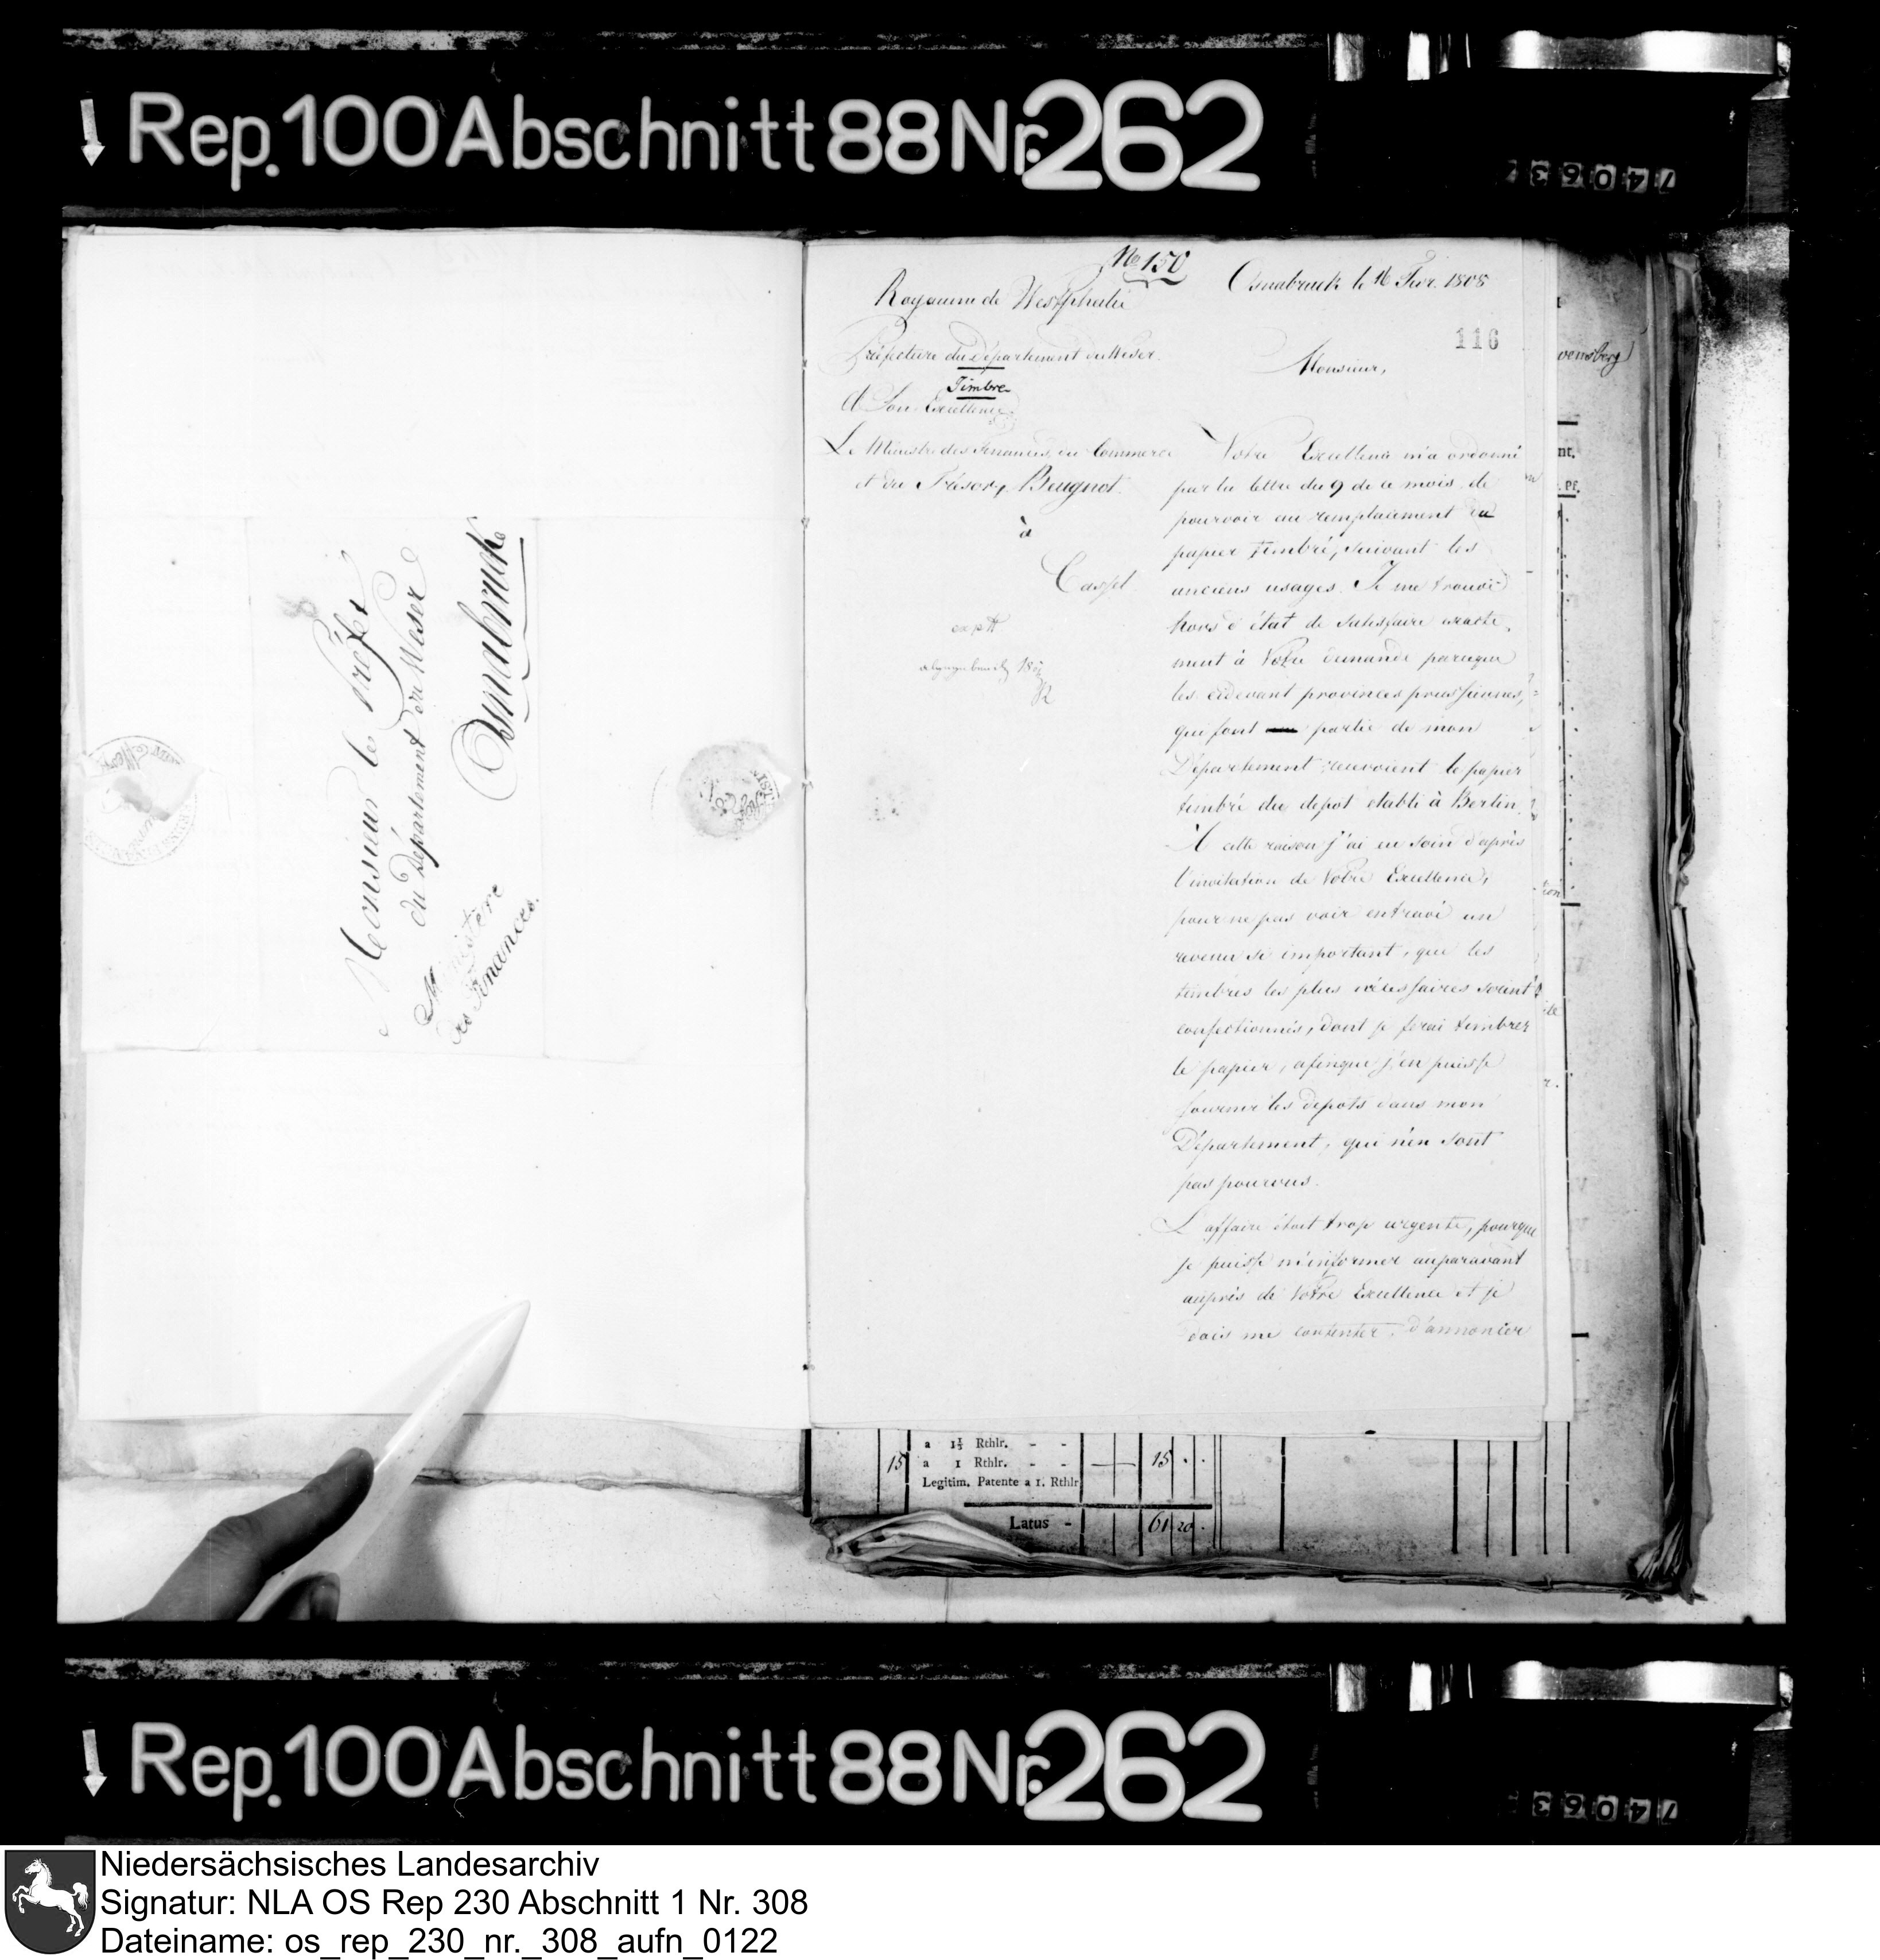 Rep. 100 Abschnitt 88 Nr. 262
Monsieur le Préfet
du Département du Weser
Osnabruck
Ministère
des Finances.
No 150
Royaume de Westphalie
Osnabruck le 16 Fevr. 1808
116
Préfecture du Département du Weser.
Timbre
Monsieur,
A Son Excellence
Le Ministre des Finances, du Commerce
et du Trésor, Beugnot.
à
Cassel
exptt
Votre Excellence m'a ordonné
par la lettre du 9 de ce mois de
pourvoir au remplacement du
papier timbré, suivant les
anciens usages. Je me trouve
hors d'état de satisfaire exacte,
ment à Votre demande parceque
les cidevant provinces prussiennes,
qui font partie de mon
Département recevoient le papier
timbré du depot etabli à Berlin.
A cette raison j'ai eu soin d'après
l'invitation de Votre Excellence,
pour ne pas voir entravé un
revenu si important, que les
timbres les plus nécessaires soient
confectionnés, dont je ferai timbrer
le papier, afinque j'en puisse
fournir les depots dans mon
Département, qui n'en sont
pas pourvus.
L'affaire étoit trop urgente, pourque
je puisse m'informer auparavant
auprès de Votre Excellence et je
dois me contenter, d'annoncer
vensberg)
nt.
Pf.
a 1½ Rthlr. - -
15 a 1 Rthlr. - - 15 . .
Legitim. Patente a 1. Rthlr
Latus - 61 20 .
Rep. 100 Abschnitt 88 Nr. 262
Niedersächsisches Landesarchiv
Signatur: NLA OS Rep 230 Abschnitt 1 Nr. 308
Dateiname: os_rep_230_nr._308_aufn_0122